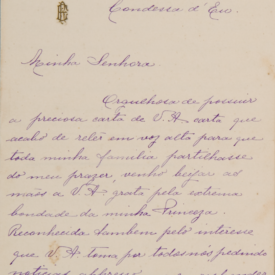 Condessa d'Eu.
Minha Senhora
Orgulhosa de possuir
a preciosa carta de V. A. carta que
acabo de relêr em voz alta para que
toda minha familia partilhasse
do meu prazer venho beijar as
mãos a V. A. grata pela extrema
bondade da minha Princeza.
Reconhecida tambem pelo interesse
que V. A. toma por todos nós pedindo
noticias